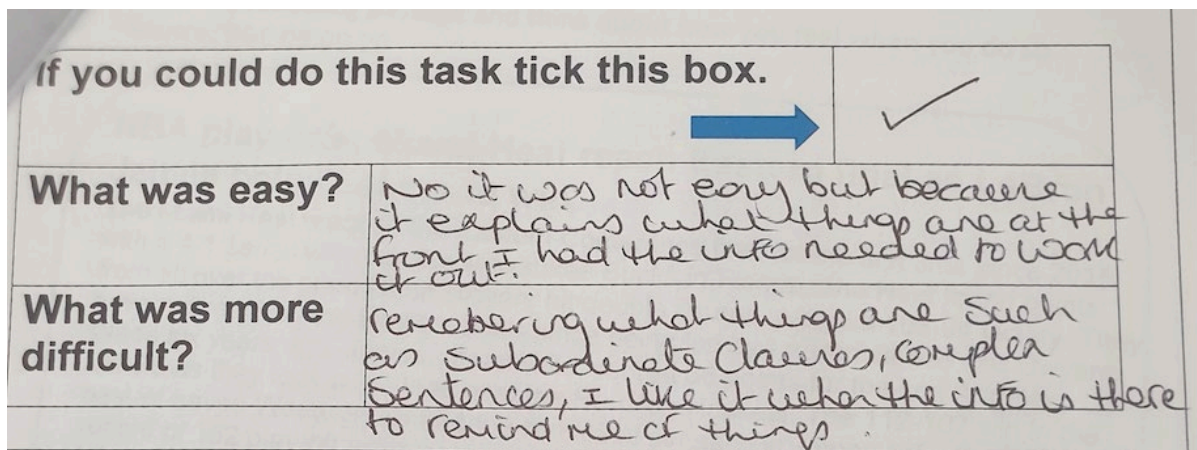 If you could do this task tick this box.
What was easy?
No it was not easy but because
it explains what things are at the
front, I had the info needed to work
it out.
What was more
difficult?
remebering what things are Such
as Subordinate Clauses, complex
Sentences, I like it when the info is there
to remind me of things.